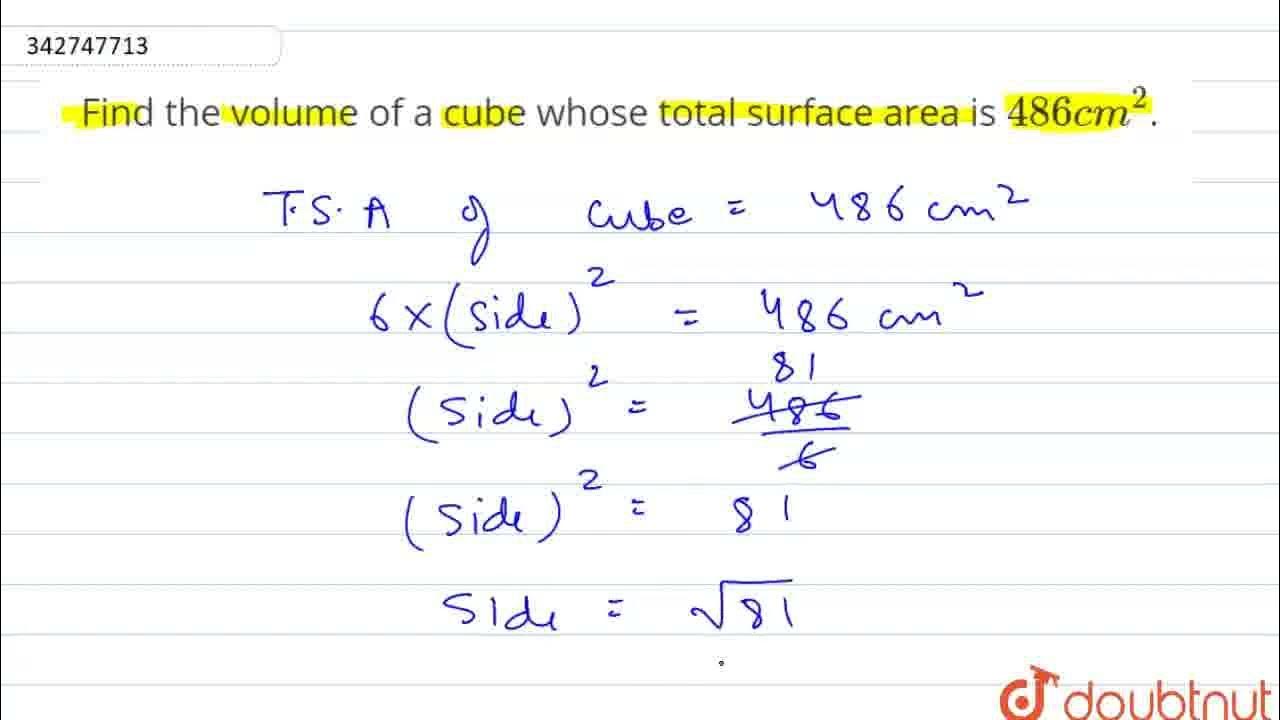 342747713
Find the volume of a cube whose total surface area is 486cm².
T.S.A of cube = 486 cm²
6 × (Side)² = 486 cm²
81
(Side)² = 486/6
(Side)² = 81
Side = √81
doubtnut